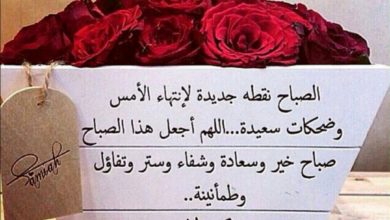 الصباح نقطه جديدة لإنتهاء الأمس
وضحكات سعيدة...اللهم أجعل هذا الصباح
صباح خير وسعادة وشفاء وستر وتفاؤل
وطمأنينة..
Samah